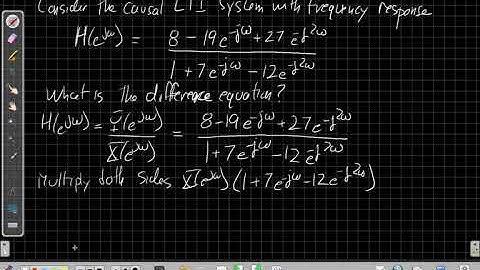 Consider the causal LTI system with frequency response
H(e^jω) = (8 - 19e^-jω + 27e^-j2ω) / (1 + 7e^-jω - 12e^-j2ω)
What is the difference equation?
H(e^jω) = Y(e^jω) / X(e^jω) = (8 - 19e^-jω + 27e^-j2ω) / (1 + 7e^-jω - 12e^-j2ω)
Multiply both sides X(e^jω)(1 + 7e^-jω - 12e^-j2ω)